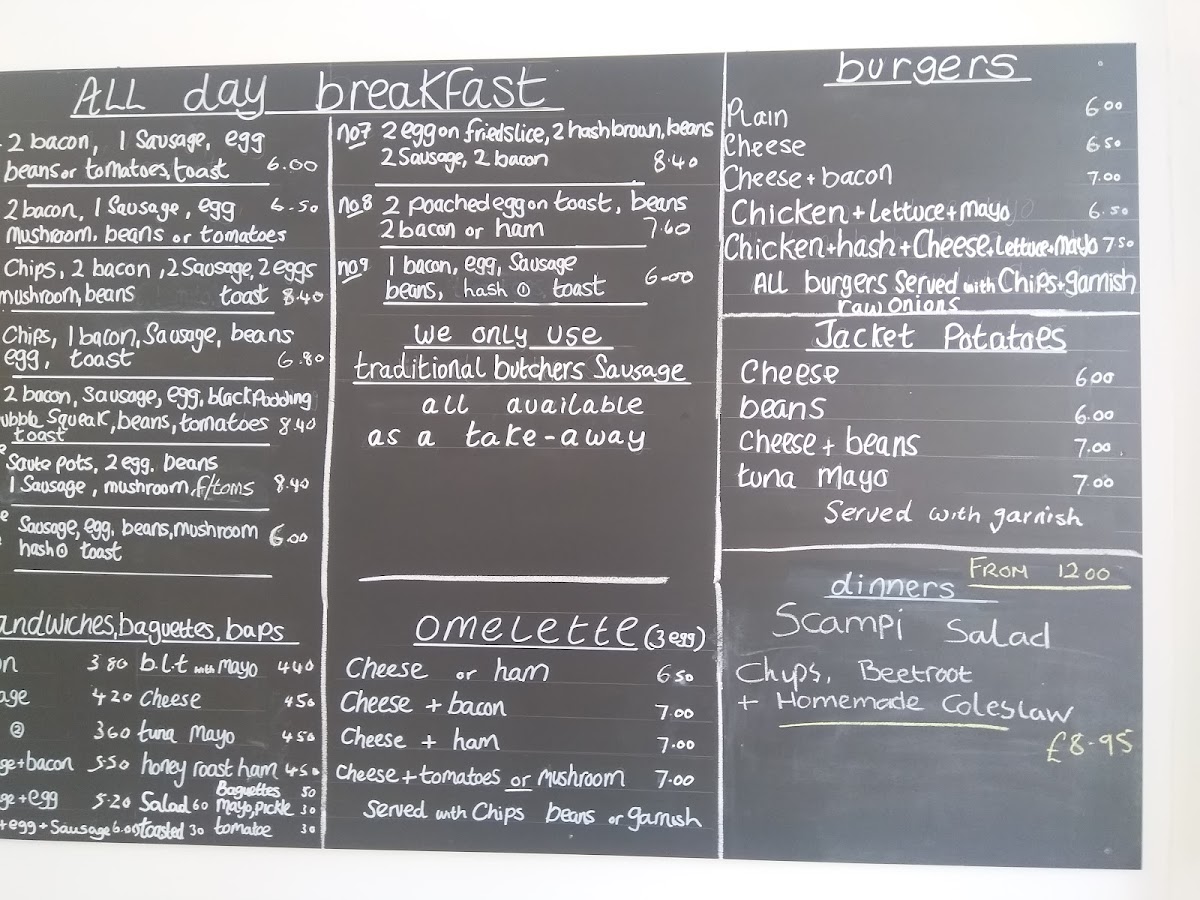 ALL day breakfast
2 bacon, 1 Sausage, egg
beans or tomatoes, toast 6.00
2 bacon, 1 Sausage, egg 6.50
mushroom. beans or tomatoes
Chips, 2 bacon, 2 Sausage, 2 eggs
mushroom, beans toast 8.40
Chips, 1 bacon, Sausage, beans
egg, toast 6.80
2 bacon, Sausage, egg, black Pudding
ubble Squeak, beans, tomatoes 8.40
toast
Saute Pots, 2 egg. beans
1 Sausage, mushroom, f/toms 8.40
Sausage, egg, beans, mushroom 6.00
hash ① toast
no7 2 egg on fried slice, 2 hash brown, beans
2 Sausage, 2 bacon 8.40
no8 2 Poached egg on toast, beans
2 bacon or ham 7.60
no9 1 bacon, egg, Sausage
beans, hash ① toast 6.00
We only use
traditional butchers Sausage
all available
as a take-away
andwiches, baguettes, baps
n 3 80 b.l.t with Mayo 4 40
age 4 20 Cheese 4 50
② 3 60 tuna Mayo 4 50
ge + bacon 5.50 honey roast ham 4 50
Baguettes 50
ge + egg 5.20 Salad 60 Mayo, Pickle 30
+ egg + Sausage 6.00 toasted 30 tomatoe 30
Omelette (3 egg)
Cheese or ham 6 50
Cheese + bacon 7.00
Cheese + ham 7.00
Cheese + tomatoes or mushroom 7.00
Served with Chips beans or garnish
burgers
Plain 6 00
Cheese 6 50
Cheese + bacon 7.00
Chicken + Lettuce + mayo 6.50
Chicken + hash + Cheese + Lettuce + Mayo 7 50
ALL burgers Served with Chips + garnish
raw onions
Jacket Potatoes
Cheese 6 00
beans 6.00
Cheese + beans 7.00
tuna mayo 7.00
Served with garnish
FROM 12 00
dinners
Scampi Salad
Chips, Beetroot
+ Homemade Coleslaw
£8.95